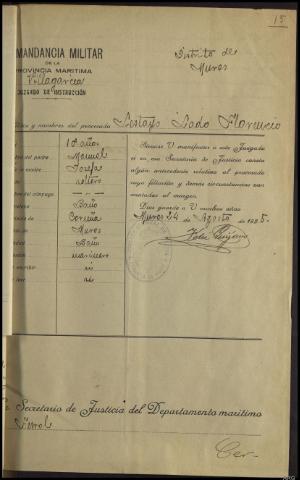 15
MANDANCIA MILITAR
DE LA
PROVINCIA MARITIMA
Villagarcía
JUZGADO DE INSTRUCCIÓN
Distrito de
Muros
y nombres del procesado Lestayo Lado Florencio
años
del padre Manuel
la madre Josefa
soltero
del cónyuge — . —
Baño
Coruña
Muros
Baño
marinero
si
si
Sírvase V. manifestar a este Juzgado
si en esa Secretaría de Justicia consta
algún antecedente relativo al procesado
cuya filiación y demás circunstancias van
anotadas al margen.
Dios guarde a V. muchos años.
Muros 24 de Agosto de 1925.
Secretario de Justicia del Departamento marítimo
Ferrol
Cer-